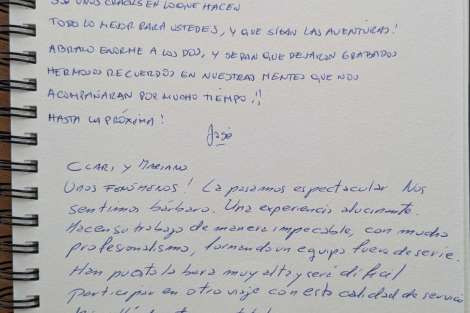 SOI UNOS CRACKS EN LO QUE HACEN
TODO LO MEJOR PARA USTEDES, Y QUE SIGAN LAS AVENTURAS!
ABRAZO ENORME A LOS DOS, Y SEPAN QUE DEJARON GRABADOS
HERMOSOS RECUERDOS EN NUESTRAS MENTES QUE NOS
ACOMPAÑARAN POR MUCHO TIEMPO!!
HASTA LA PRÓXIMA!
José
CLARI Y MARIANO
UNOS FENÓMENOS! La pasamos espectacular Nos
sentimos bárbaro. Una experiencia alucinante.
Hacen su trabajo de manera impecable, con mucho
profesionalismo, formando un equipo fuera de serie.
Han puesto la bara muy alta y será dificil
participar en otro viaje con esta calidad de servicio